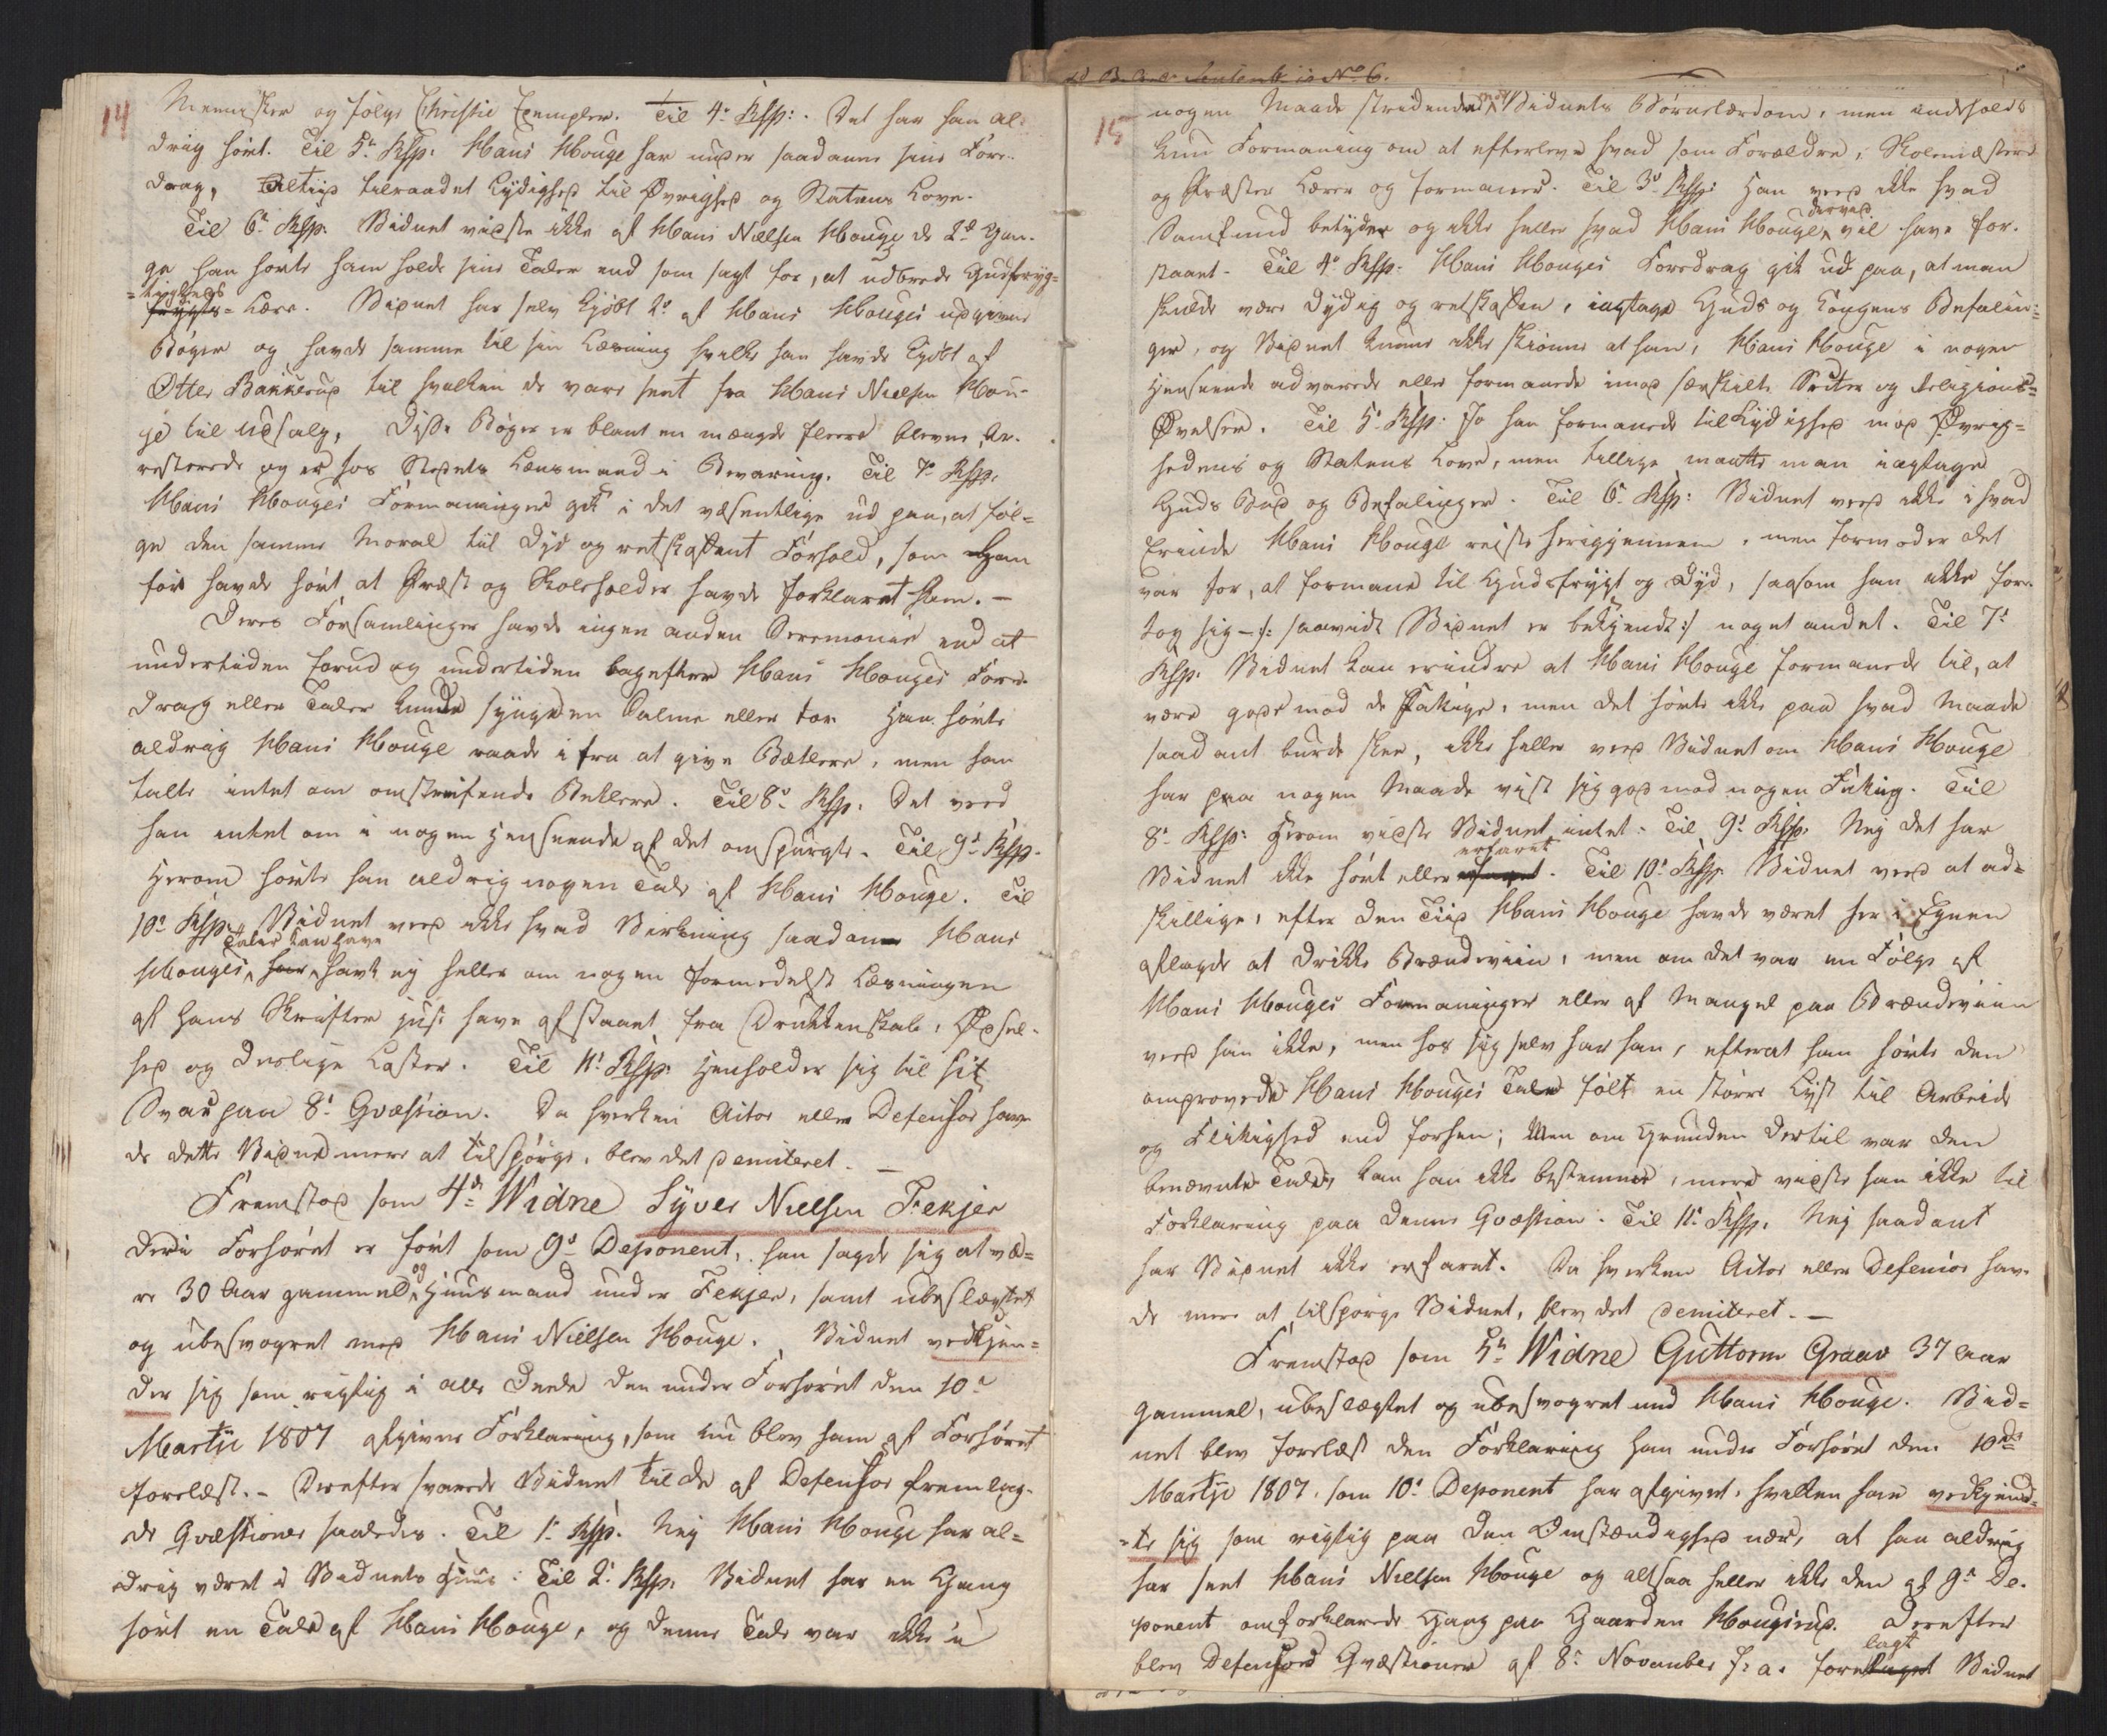 14
Mennisker og følge Christi Exempler. Til 4.de Rssp:. Det har han al-
drig hørt. Til 5.te Rssp. Hans Houge har under saadanne sine Fore-
drag, altiid tilraadet Lydighed til Øvrighed og Statens Love.
Til 6.te Rssp. Vidnet vidste ikke af Hans Nielsen Houge de 2.de Gan-
ge han hørte ham holde sine Taler end som sagt for, at udbrede Gudfryg-
=tigheds
Lære. Vidnet har selv kjøbt 2.de af Hans Houges udgivne
Bøger og havde samme til sin Læsning hvilke han havde kjøbt af
Otter Bakkerud til hvilken de vare sent fra Hans Nielsen Hou-
ge til Udsalg, Disse Bøger er blant en mængde fleere blevne Ar-
resterede og er hos Stedets Lensmand i Bevaring. Til 7.de Rssp.
Hans Houges Formaninger gik i det væsentlige ud paa, at føl-
ge den samme Moral til Dyd og retskaffent Forhold, som han
før havde hørt at Præst og Skoleholder havde forklaret ham. —
Deres Forsamlinger havde ingen anden Ceremonie end at
undertiden forud og undertiden bagefter Hans Houges Fore-
drag eller Taler kunde synges en Psalme eller toe. Han hørte
aldrig Hans Houge raade ifra at give Betlere, men han
talte intet om omstreifende Betlere. Til 8.de Rssp. Det veed
han intet om i nogen Henseende af det omspurgte. Til 9.de Rssp.
Herom hørte han aldrig nogen Tale af Hans Houge. Til
10.de Rssp. Vidnet veed ikke hvad Virkning saadanne Hans
Taler kan have
Houges har havt ej heller om nogen formedelst Læsningen
af hans Skrifter just have afstaaet fra Drukkenskab, Ødsel-
hed og deslige Laster. Til 11.te Rssp. Henholder sig til sit
Svar paa 8.de Qvæstion. Da hverken Actor eller Defensor hav-
de dette Vidne mere at tilspørge, blev det demiteret. —
Fremstod som 4.de Widne Syver Nielsen Fekjer
der i Forhøret er ført som 9.de Deponent, han sagde sig at væ-
og
re 30 Aar gammel Huusmand under Fekjer, samt ubeslægtet
og ubesvogret med Hans Nielsen Houge. Vidnet vedkjen-
der sig som rigtig i alle Deele den under Forhøret den 10.de
Martji 1807 afgivne Forklaring, som nu blev ham af Forhøret
forelæst. – Derefter svarede Vidnet til de af Defensor fremlag-
de Qvæstioner saaledes. Til 1.ste Rssp. Nej Hans Houge har al-
drig været i Vidnets Huus. Til 2.de Rssp. Vidnet har en Gang
hørt en Tale af Hans Houge, og denne Tale var ikke i
15
mod
nogen Maade stridende Vidnets Børnelærdom, men indeholdt
kun Formaning om at efterleve hvad som Forældre, Skolemæstere
og Præster lærer og formaner. Til 3.de Rssp. Han veed ikke hvad
derved
Samfund betyder og ikke heller hvad Hans Houge vil have for-
staaet. Til 4.de Rssp. Hans Houges Foredrag gik ud paa, at man
skulde være dydig og retskaffen, iagtage Guds og Kongens Befalin-
ger, og Vidnet kunne ikke skiønne at han, Hans Houge i nogen
Henseende advarede eller formanede imod særskilte Secter og Religions-
Øvelser. Til 5.te Rssp. Jo han formanede til Lydighed mod Øvrig-
hedens og Statens Love, men tillige maatte man iagtage
Guds Bud og Befalinger. Til 6.te Rssp: Vidnet veed ikke i hvad
Erinde Hans Houge reiste herigjennem, men formoder det
var for, at formane til Gudsfrygt og Dyd, saasom han ikke fore-
tog sig –/: saavidt Vidnet er bekjendt :/ noget andet. Til 7.de
Rssp. Vidnet kan erindre at Hans Houge formanede til, at
være gode mod de Fattige, men det hørte ikke paa hvad Maade
saadant burde skee, ikke heller veed Vidnet om Hans Houge
har paa nogen Maade viist sig god mod nogen Fattig. Til
8.de Rssp: Herom vidste Vidnet intet. Til 9.de Rssp. Nej det har
erfaret
Vidnet ikke hørt eller . Til 10.de Rssp. Vidnet veed at ad-
skillige, efter den Tiid Hans Houge havde været her i Egnen
aflagde at drikke Brændeviin, men om det var en Følge af
Hans Houges Formaninger eller af Mangel paa Brændeviin
veed han ikke, men hos sig selv har han, efterat han hørte den
omprovede Hans Houges Tale følt en større Lyst til Arbeide
og Flitighed end forhen; Men om Grunden dertil var den
benævnte Tale, kan han ikke bestemme, mere vidste han ikke til
Forklaring paa denne Qvæstion. Til 11.te Rssp. Nej saadant
har Vidnet ikke erfaret. Da hverken Actor eller Defensor hav-
de mere at tilspørge Vidnet, blev det demiteret. —
Fremstod som 5.te Widne Guttorm Graav 37 Aar
gammel, ubeslægtet og ubesvogret med Hans Houge. Vid-
net blev forelæst den Forklaring han under Forhøret den 10.de
Martji 1807. som 10.de Deponent har afgivet, hvilken han vedkjend-
te sig som rigtig paa den Omstændighed nær, at han aldrig
har seet Hans Nielsen Houge og altsaa heller ikke den af 9.de De-
ponent omforklarede Gang paa Gaarden Hougerud. Derefter
lagt
blev Defensors Qvæstioner af 8.de November f: a. fore Vidnet